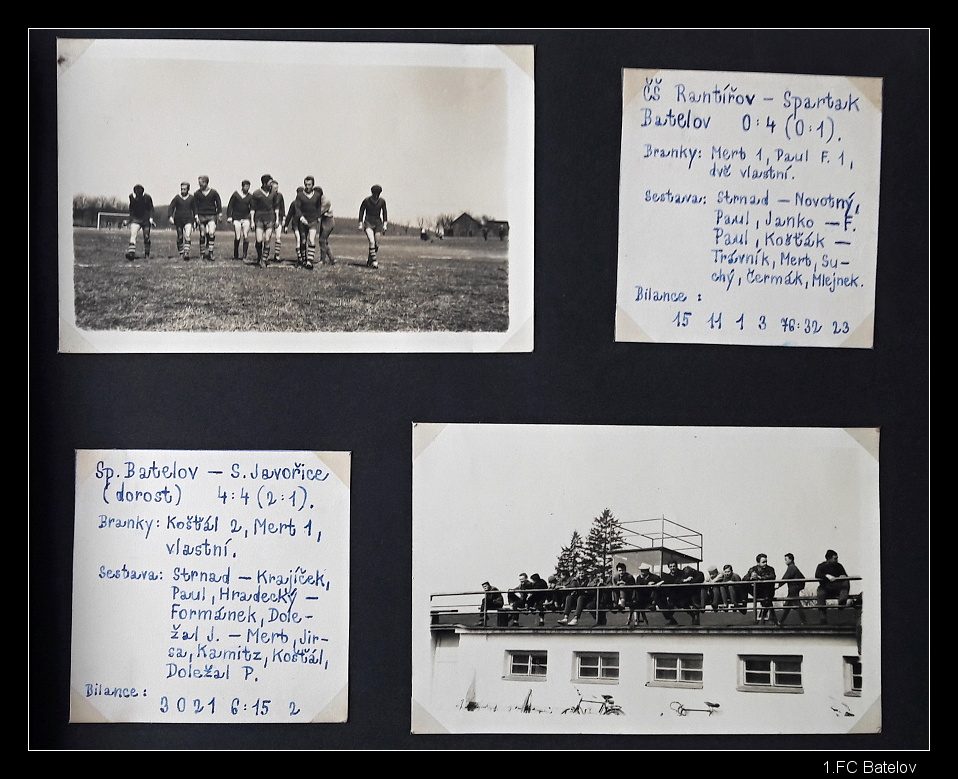 ČŠ Rantířov – Spartak
Batelov 0:4 (0:1).
Branky: Mert 1, Paul F. 1,
dvě vlastní.
Sestava: Strnad – Novotný,
Paul, Janko – F.
Paul, Košťák –
Trávník, Mert, Su-
chý, Čermák, Mlejnek.
Bilance:
15 11 1 3 76:32 23
Sp. Batelov – S. Javořice
(dorost) 4:4 (2:1).
Branky: Košťál 2, Mert 1,
vlastní.
Sestava: Strnad – Krajíček,
Paul, Hradecký –
Formánek, Dole-
žal J. – Mert, Jir-
sa, Kamitz, Košťál,
Doležal P.
Bilance:
3 0 2 1 6:15 2
1.FC Batelov